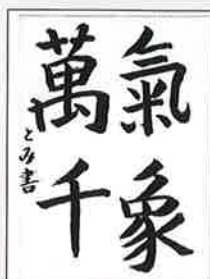 氣象
萬千
とみ書